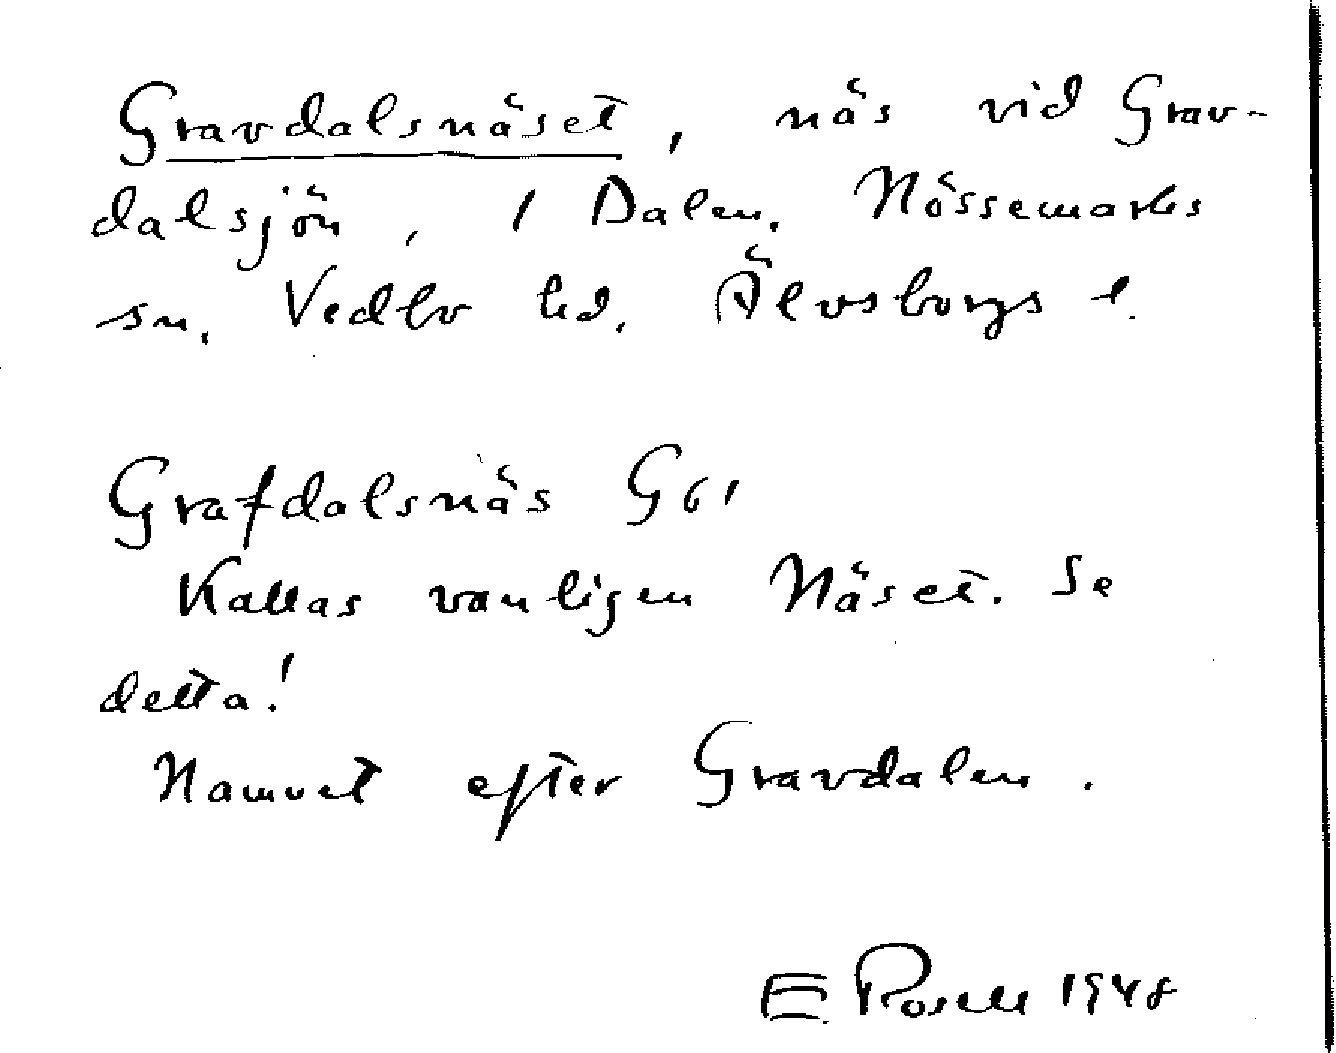 Gravdalsnäset, näs vid Grav-
dalsjön, 1 Dalen. Nössemarks
sn. Vedbo hd. Älvsborgs l.
Grafdalsnäs G61
Kallas vanligen Näset. Se
detta!
Namnet efter Gravdalen.
E. Rosell 1948